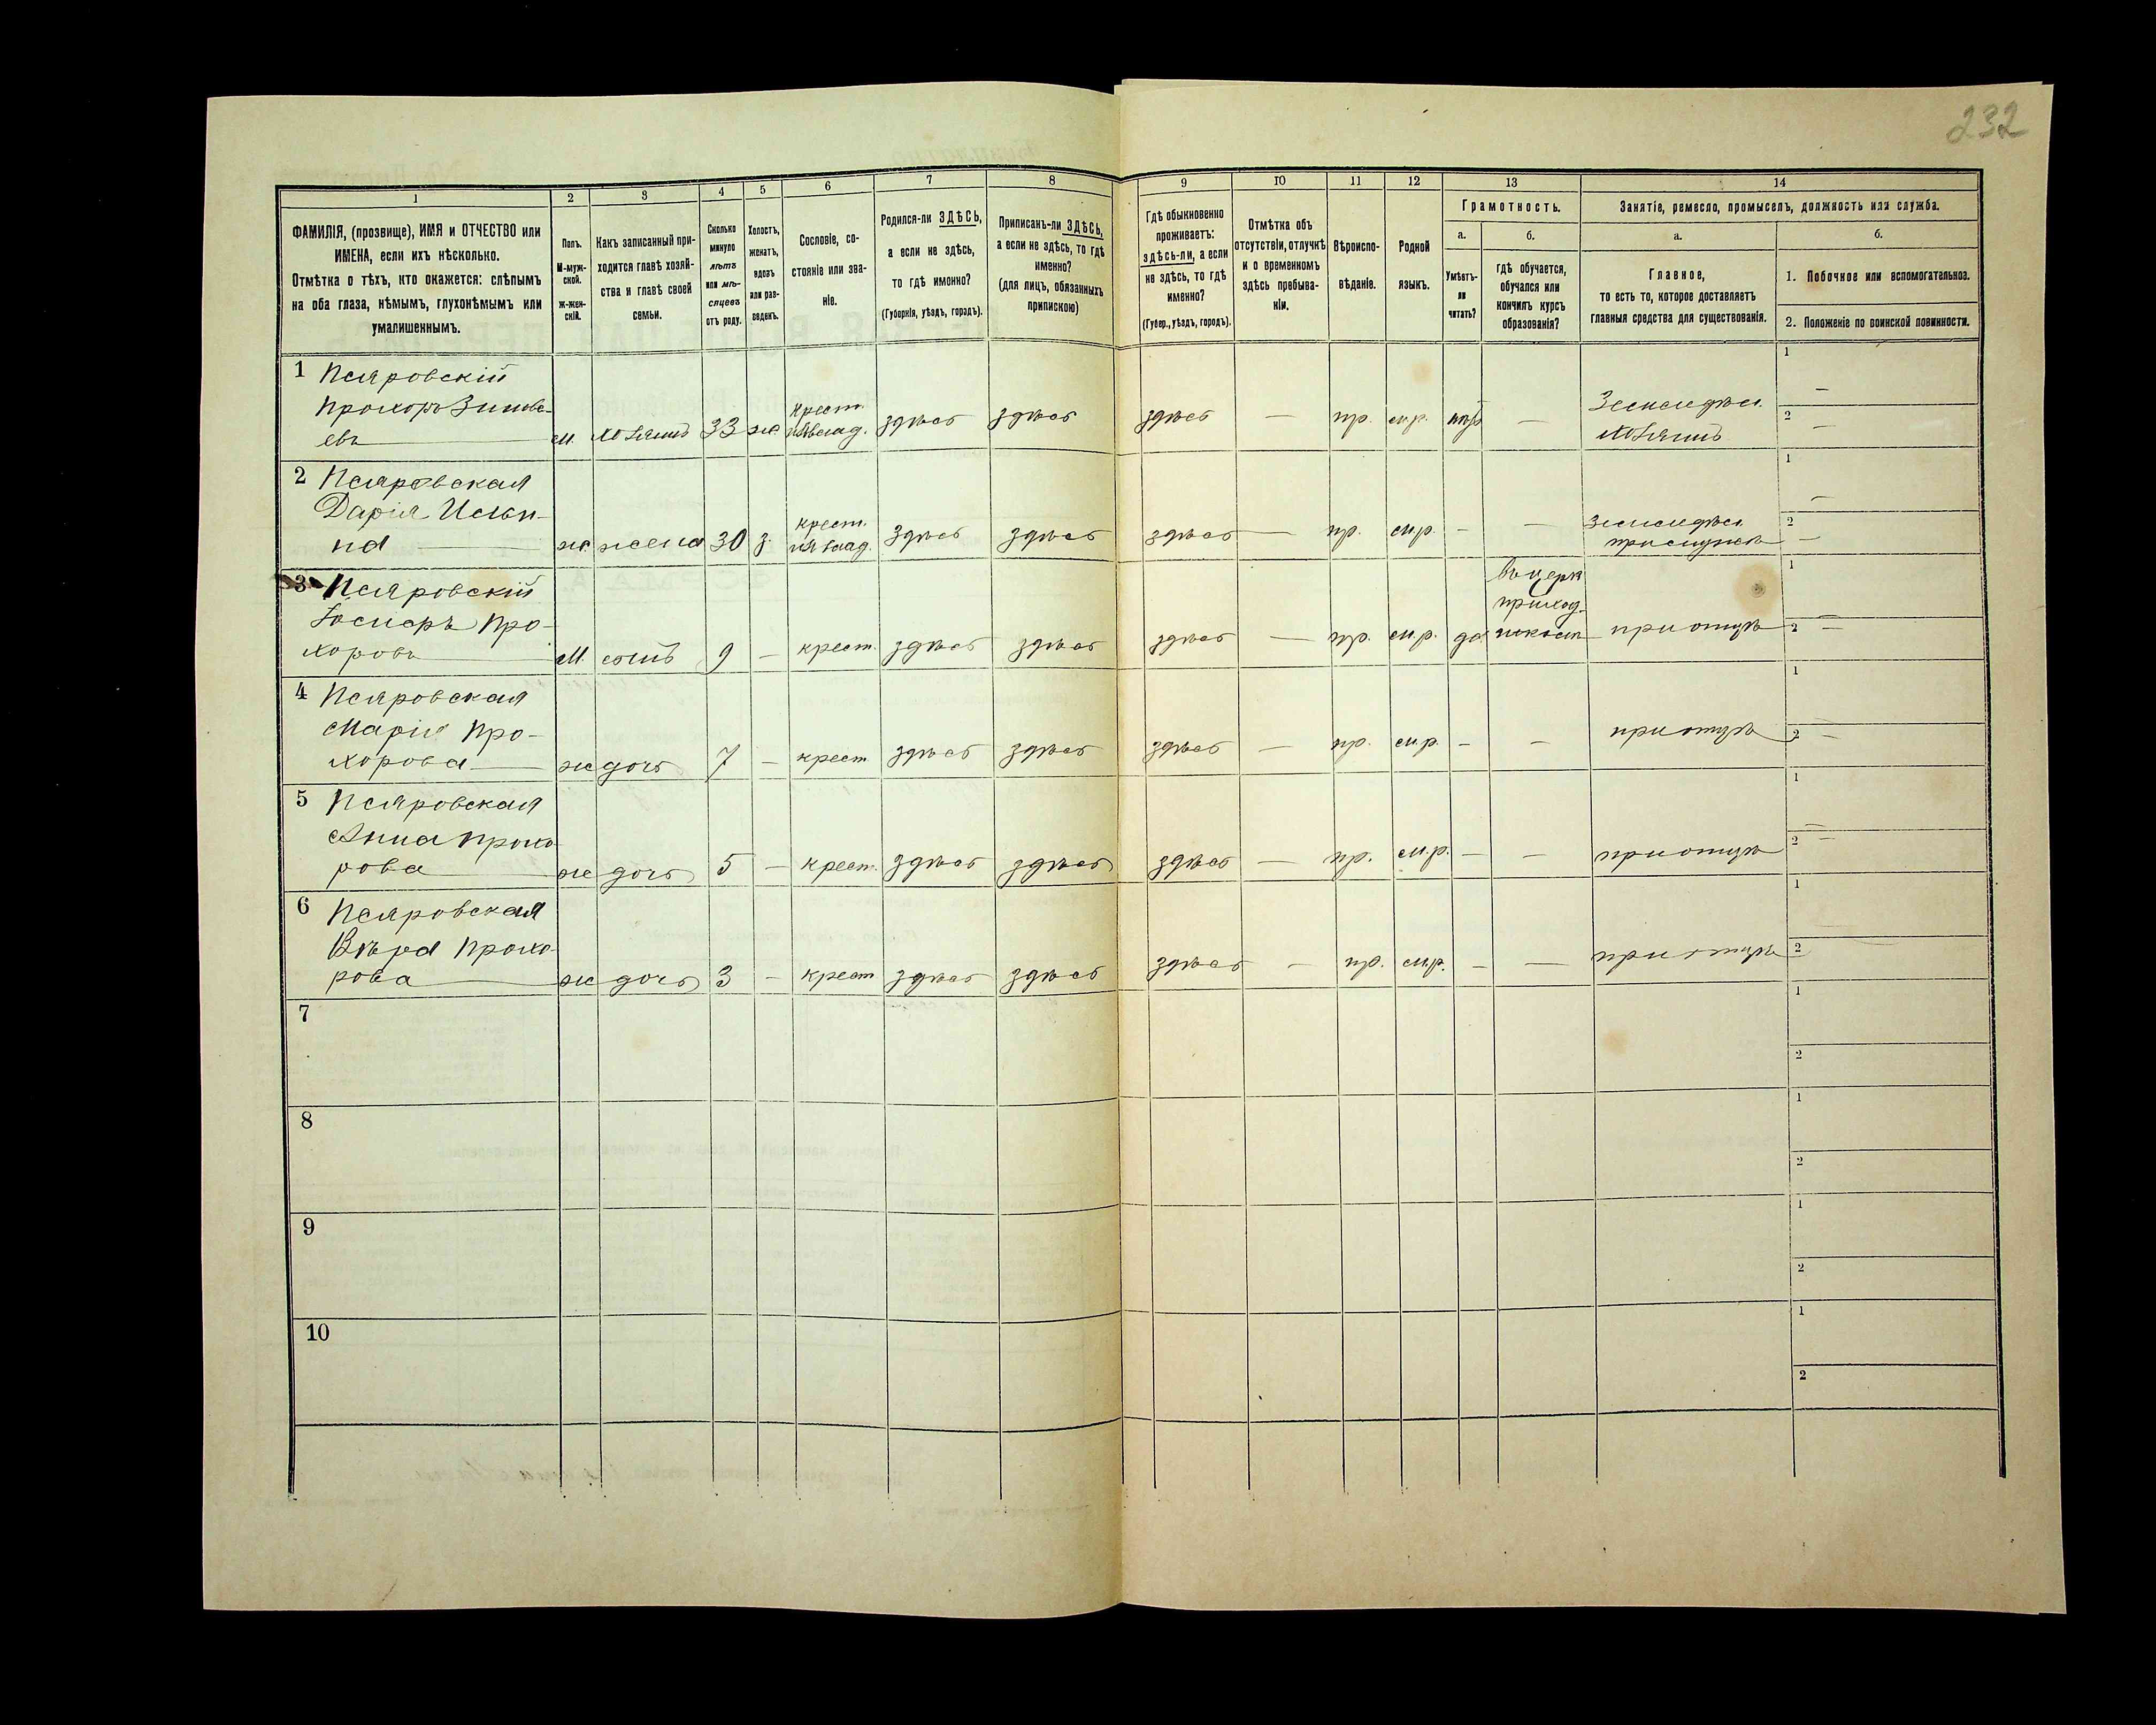 232
1
2
3
4
5
6
7
8
9
10
11
12
13
14
ФАМИЛІЯ, (прозвище), ИМЯ и ОТЧЕСТВО или
ИМЕНА, если ихъ нѣсколько.
Отмѣтка о тѣхъ, кто окажется: слѣпымъ
на оба глаза, нѣмымъ, глухонѣмымъ или
умалишеннымъ.
Полъ.
М-муж-
ской.
Ж-жен-
скій.
Какъ записанный при-
ходится главѣ хозяй-
ства и главѣ своей
семьи.
Сколько
минуло
лѣтъ
или мѣ-
сяцевъ
отъ роду.
Холостъ,
женатъ,
вдовъ
или раз-
веденъ.
Сословіе, со-
стояніе или зва-
ніе.
Родился-ли ЗДѢСЬ,
а если не здѣсь,
то гдѣ именно?
(Губернія, уѣздъ, городъ).
Приписанъ-ли ЗДѢСЬ,
а если не здѣсь, то гдѣ
именно?
(для лицъ, обязанныхъ
припискою)
Гдѣ обыкновенно
проживаетъ:
здѣсь-ли, а если
не здѣсь, то гдѣ
именно?
(Губер., уѣздъ, городъ).
Отмѣтка объ
отсутствіи, отлучкѣ
и о временномъ
здѣсь пребыва-
ніи.
Вѣроиспо-
вѣданіе.
Родной
языкъ.
Грамотность.
а.
Умѣетъ-
ли
читать?
б.
гдѣ обучается,
обучался или
кончилъ курсъ
образованія?
Занятіе, ремесло, промыселъ, должность или служба.
а.
Главное,
то есть то, которое доставляетъ
главныя средства для существованія.
б.
1. Побочное или вспомогательное.
2. Положеніе по воинской повинности.
1 Псяровскій
Прохоръ Зиновь-
евъ
м. хозяинъ 33 ж. крест. здѣсь здѣсь здѣсь — пр. —
Земледѣл.
хозяинъ
1 —
2 —
2 Псяровская
Дарія
на
ж. жена 30 з. крест. здѣсь здѣсь здѣсь — пр. — —
Земледѣл.
1 —
2 —
3 Псяровскій
Про-
хоровъ
м. сынъ 9 — крест. здѣсь здѣсь здѣсь — пр. да
въ церк
приход.
школѣ
при отцѣ
1 —
2 —
4 Псяровская
Марія Про-
хорова
ж дочь 7 — крест здѣсь здѣсь здѣсь — пр. — — при отцѣ
1 —
2 —
5 Псяровская
Анна Прохо-
рова
ж дочь 5 — крест. здѣсь здѣсь здѣсь — пр. — — при отцѣ
1 —
2 —
6 Псяровская
Вѣра Прохо-
рова
ж дочь 3 — крест здѣсь здѣсь здѣсь — пр. — — при отцѣ
1 —
2 —
7
1
2
8
1
2
9
1
2
10
1
2